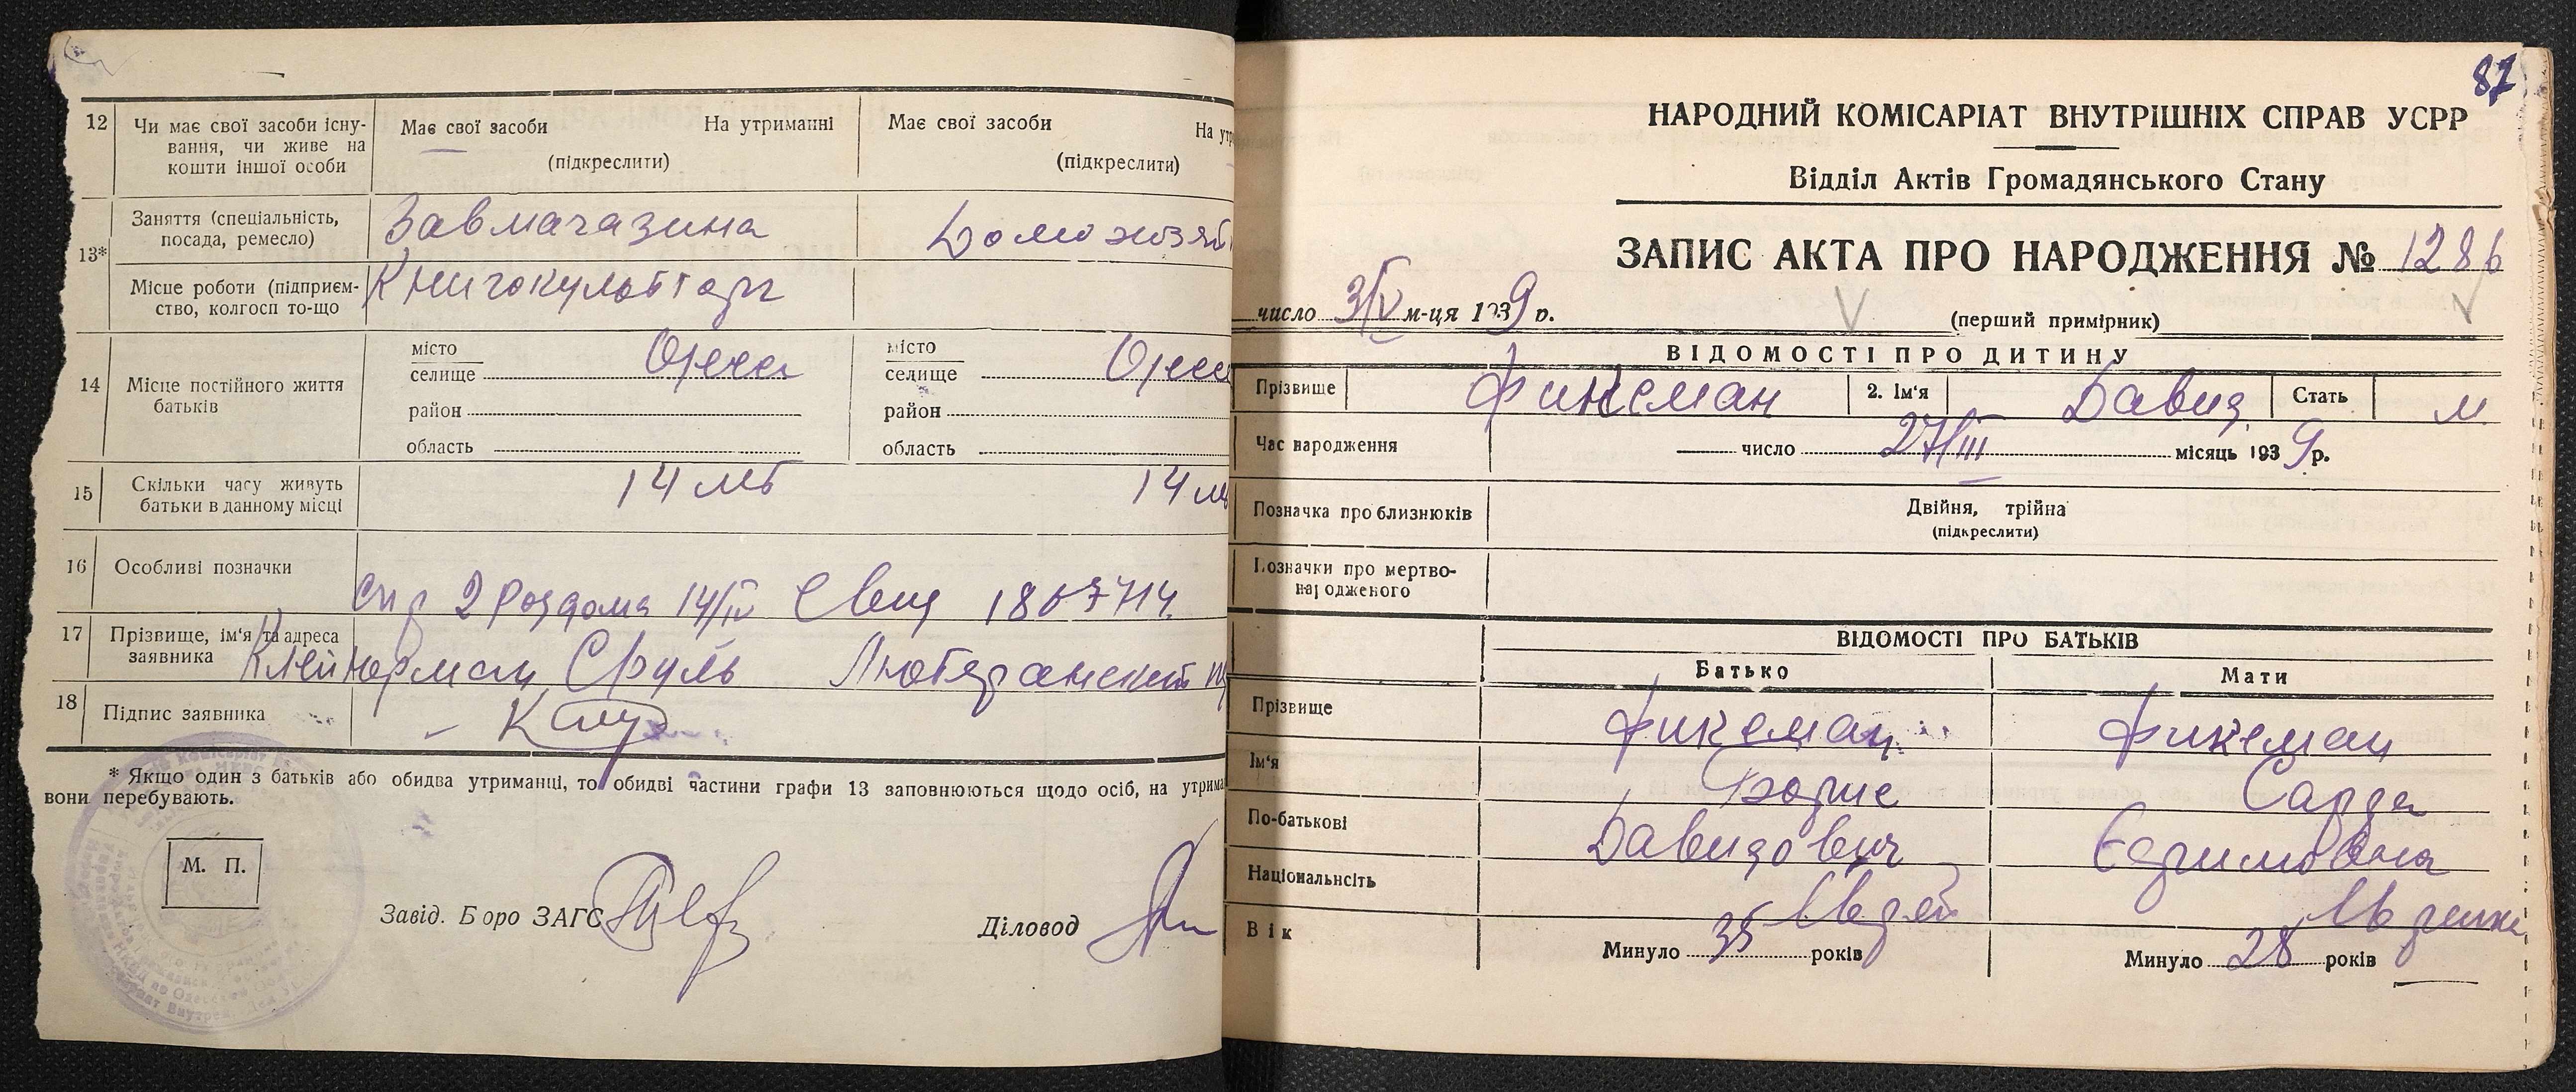 12 Чи має свої засоби існу-
вання, чи живе на
кошти іншої особи
Має свої засоби На утриманні
(підкреслити)
Має свої засоби На утр
(підкреслити)
13*
Заняття (спеціальність,
посада, ремесло)
Завмагазина
Домохозяй
Місце роботи (підприєм-
ство, колгосп то-що
Книгокультторг
14 Місце постійного життя
батьків
місто
селище Одесса
район
область
місто
селище Одесс
район
область
15 Скільки часу живуть
батьки в данному місці
14 лет
14 ле
16 Особливі позначки
спр 2 роддома 14/IV
17 Прізвище, ім'я та адреса
заявника
Клейнерман Сруль Лютеранский
18 Підпис заявника
* Якщо один з батьків або обидва утриманці, то обидві частини графи 13 заповнюються щодо осіб, на утрима
вони перебувають.
М. П.
Завід. Бюро ЗАГС
Діловод
87
НАРОДНИЙ КОМІСАРІАТ ВНУТРІШНІХ СПРАВ УСРР
Відділ Актів Громадянського Стану
ЗАПИС АКТА ПРО НАРОДЖЕННЯ № 1286
число 3/V м-ця 1939 р.
(перший примірник)
ВІДОМОСТІ ПРО ДИТИНУ
Прізвище Фиксман 2. Ім'я Давид Стать м.
Час народження число 27/III місяць 1939 р.
Позначка про близнюків
Двійня, трійна
(підкреслити)
Позначки про мертво-
народженого
ВІДОМОСТІ ПРО БАТЬКІВ
Батько Мати
Прізвище Фиксман Фиксман
Ім'я Борис Сарра
По-батькові Давидович Ефримовна
Національність Еврей Еврейка
Вік
Минуло 35 років
Минуло 28 років